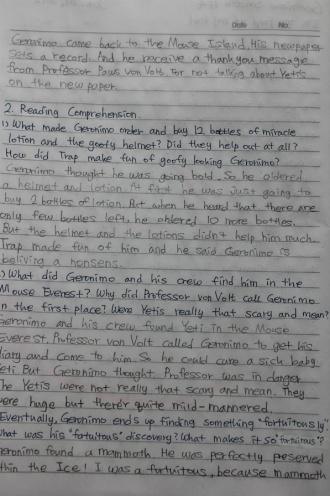 Date No.
Geronimo came back to the Mouse Island. His newspaper
sets a record. And he receive a thank you message
from Professor Paws von Volt. For not talking about Yetis
on the new paper.
2. Reading Comprehension
1) What made Geronimo order and buy 12 bottles of miracle
lotion and the goofy helmet? Did they help out at all?
How did Trap make fun of goofy looking Geronimo?
Geronimo thought he was going bald. So he oldered
a helmet and lotion. At first he was just going to
buy 2 bottles of lotion. But when he heard that there are
only few bottles left, he ohlered 10 more bottles.
But the helmet and the lotions didn't help him much.
Trap made fun of him and he said Geronimo is
beliving a nonsens.
) What did Geronimo and his crew find him in the
Mouse Everest? Why did Professor von Volt call Geronimo
in the first place? Were Yetis really that scary and mean?
Geronimo and his crew found Yeti in the Mouse
Everest. Professor von Volt called Geronimo to get his
diary and come to him. So he could cure a sick baby
Yeti. But Geronimo thought Professor was in danger.
The Yetis were not really that scary and mean. They
were huge but there'r quite mild-mannered.
Eventually, Geronimo ends up finding something "fortuitously".
What was his "fortuitous" discovery? What makes it so "fortuitous"?
Geronimo found a mammoth. He was perfectly preserved
thin the Ice! I was a fortuitous, because mammoth